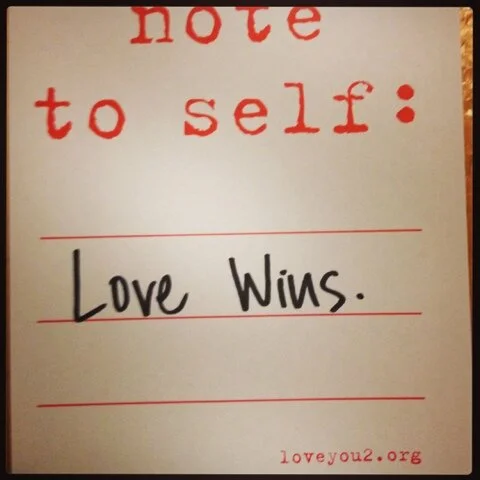 note
to self:
Love Wins.
loveyou2.org